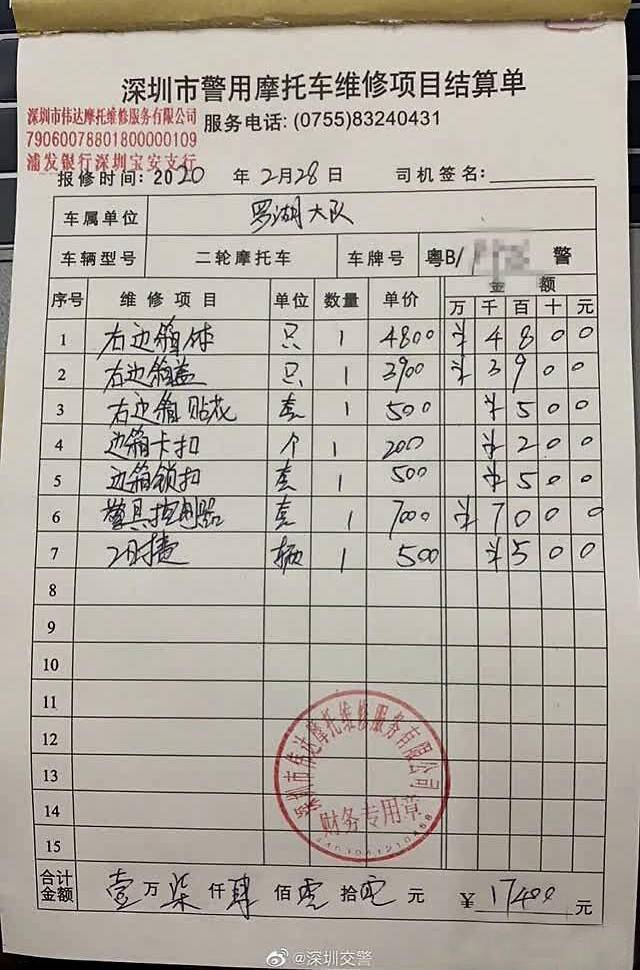 深圳市警用摩托车维修项目结算单
深圳市伟达摩托维修服务有限公司 服务电话: (0755)83240431
79060078801800000109
浦发银行深圳宝安支行
报修时间: 2020 年 2月28日 司机签名:
车属单位 罗湖大队
车辆型号 二轮摩托车 车牌号 粤B/ 警
序号 维修项目 单位 数量 单价 金额
万 千 百 十 元
1 右边箱体 只 1 4800 ¥4800
2 右边箱盖 只 1 3900 ¥3900
3 右边箱贴花 套 1 500 ¥500
4 边箱卡扣 个 1 200 ¥200
5 边箱锁扣 套 1 500 ¥500
6 警具控制器 套 1 7000 ¥7000
7 工时费 辆 1 500 ¥500
8
9
10
11
12
13
14
15
深圳市伟达摩托维修服务有限公司
财务专用章
合计金额 壹万柒仟肆佰零拾零元 ¥17400元
@深圳交警